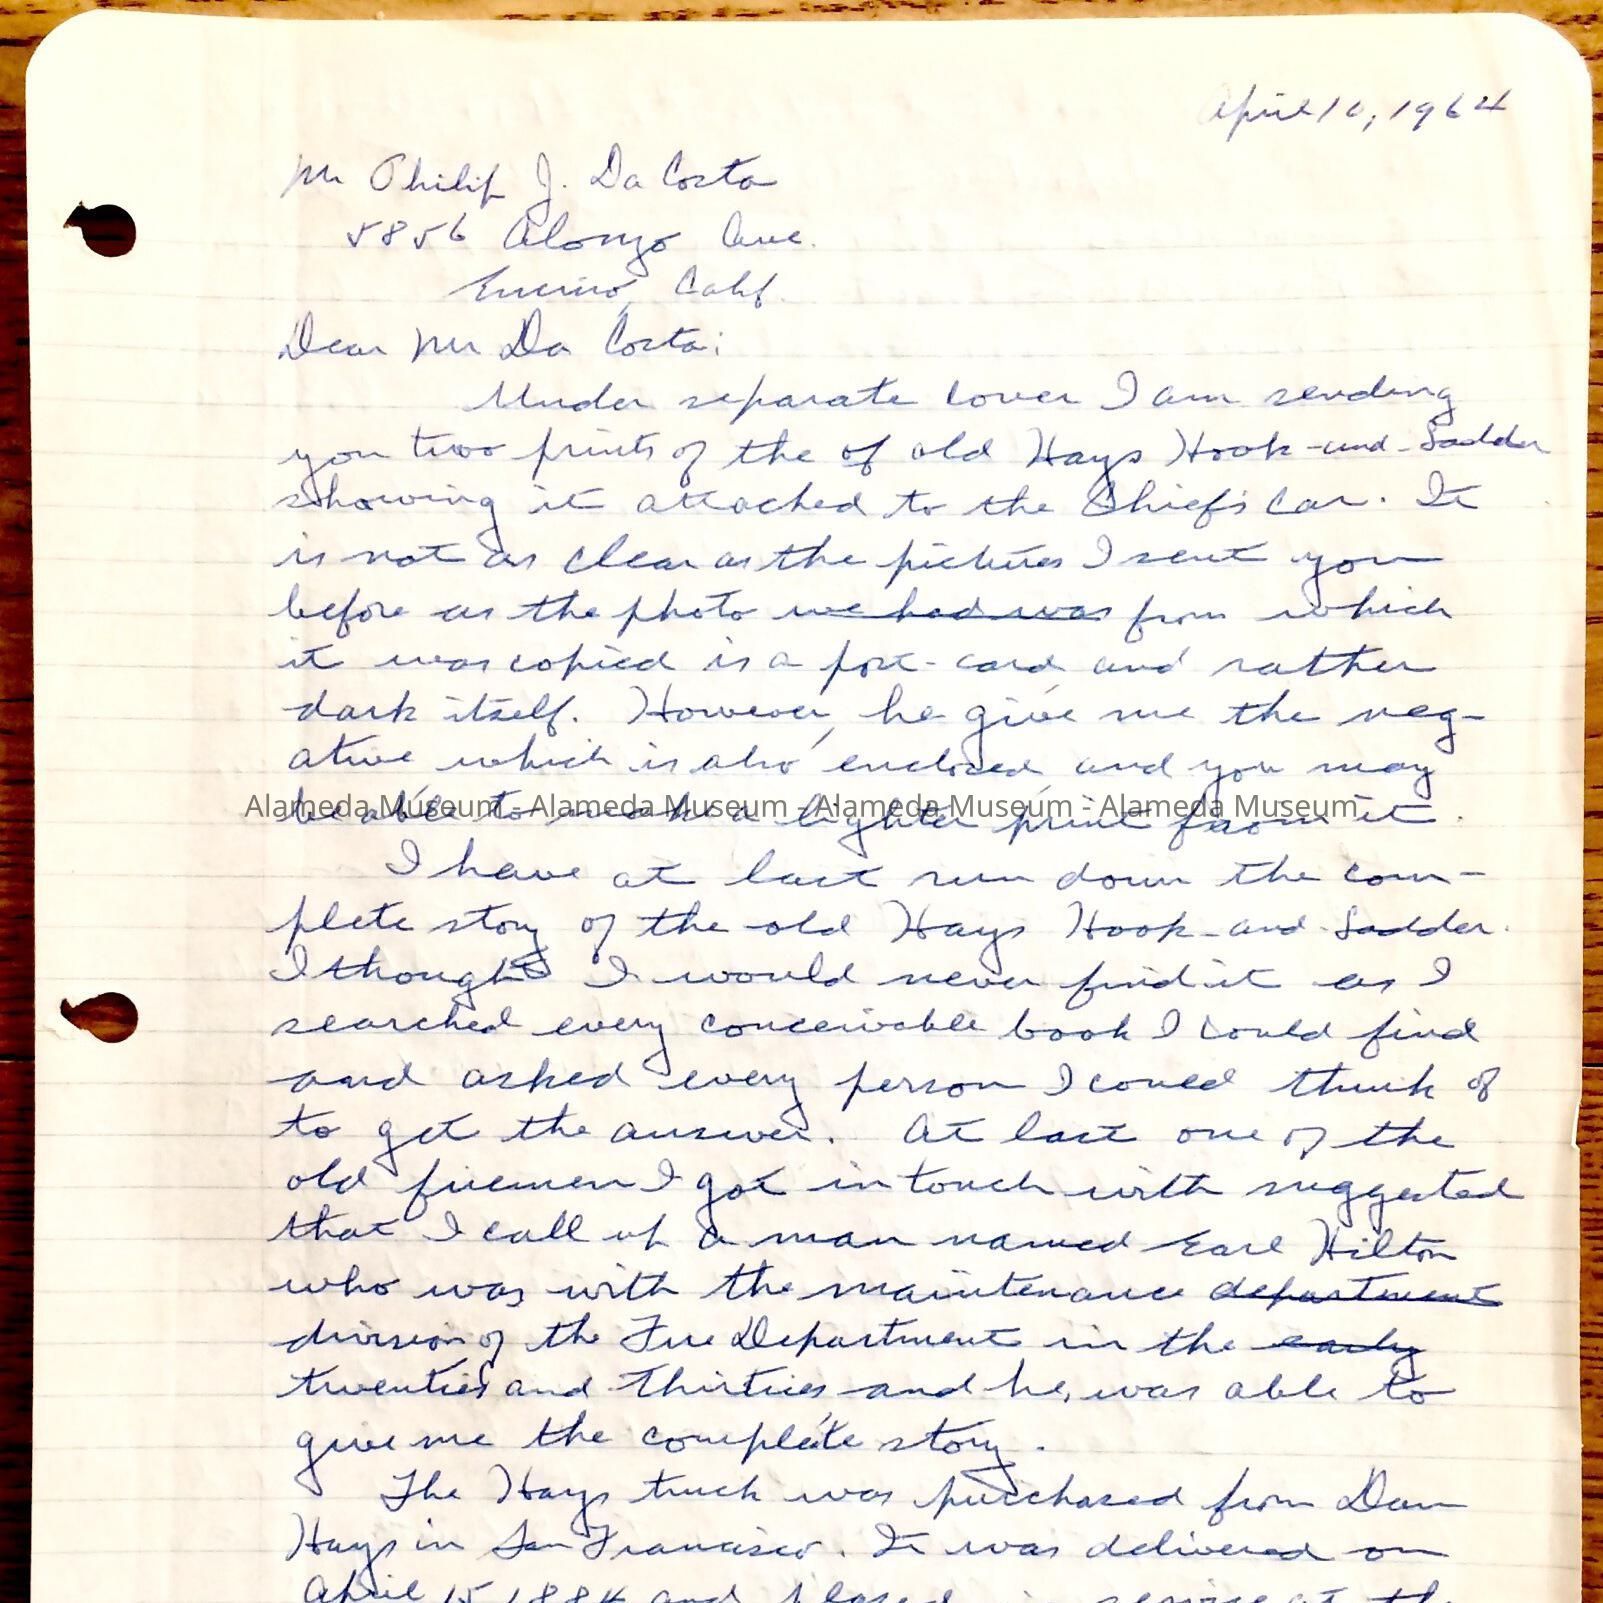 April 10, 1964
Mr Philip J. Da Costa
5856 Alonzo Ave.
Encino, Calif.
Dear Mr Da Costa:
Under separate cover I am sending
you two prints of the of old Hays Hook-and-Ladder
showing it attached to the Chief's Car. It
is not as clear as the pictures I sent you
before as the photo we had was from which
it was copied is a post-card and rather
dark itself. However, he give me the neg-
ative which is also enclosed and you may
be able to make a lighter print from it.
Alameda Museum - Alameda Museum - Alameda Museum - Alameda Museum
I have at last run down the com-
plete story of the old Hays Hook-and-Ladder.
I thought I would never find it as I
searched every conceivable book I could find
and asked every person I could think of
to get the answer. At last one of the
old firemen I got in touch with suggested
that I call up a man named Earl Hilton
who was with the maintenance department
division of the Fire Department in the early
twenties and thirties and he was able to
give me the complete story.
The Hays truck was purchased from Dan
Hays in San Francisco. It was delivered on
April 15 1884 and placed in service at the